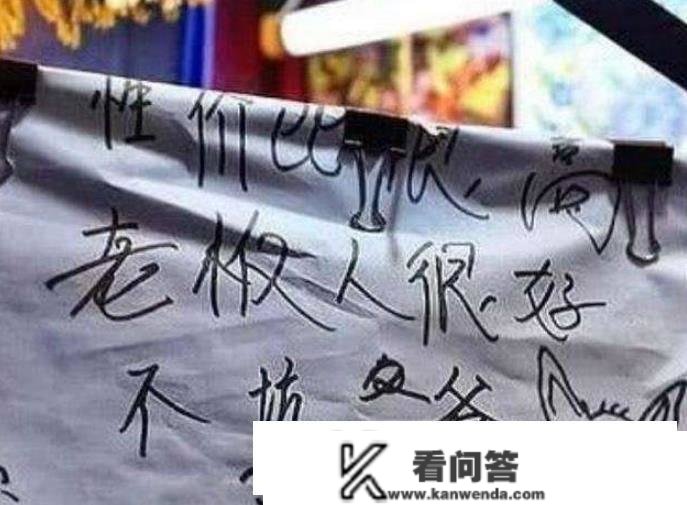 性价比很高
老板人很好
不坑爹
看问答
www.kanwenda.com